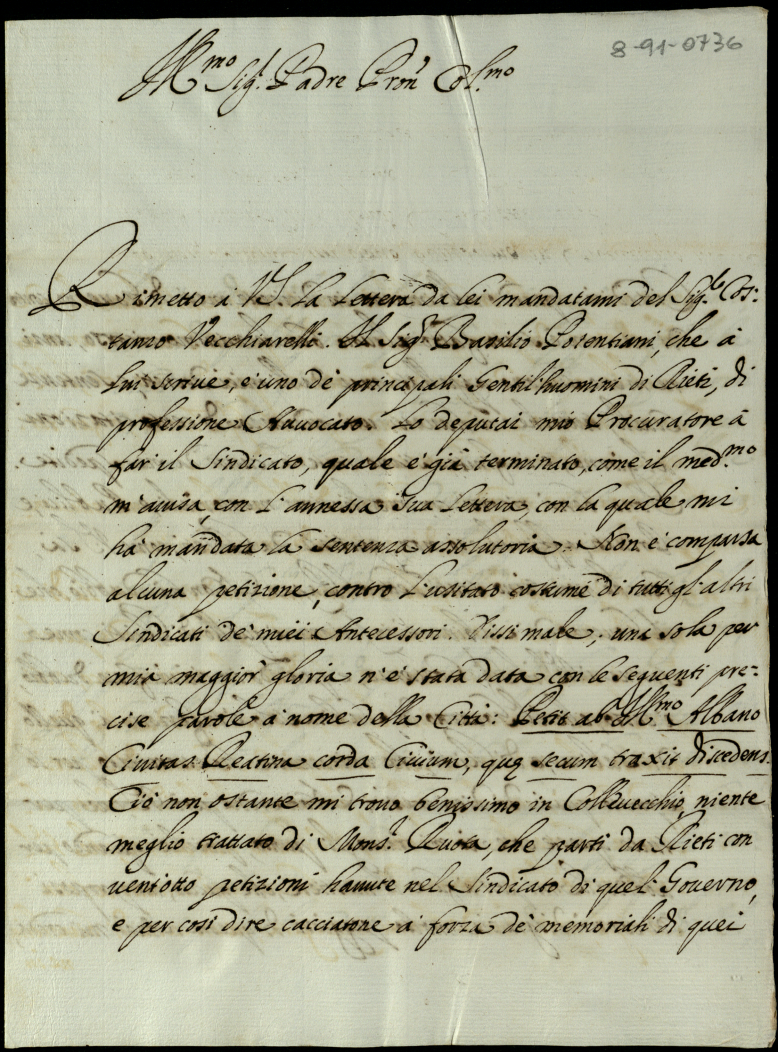 8-91-0736
Ill.mo Sig.r Padre Pron Col.mo
Rimetto à VS. la lettera da lei mandatami del Sig.r Cos:
tanzo Vecchiarelli. Il Sig.r Basilio Potentiani, che à
lui scrive, è uno de principali Gentil'huomini di Rieti, di
professione Avvocato. Lo deputai mio Procuratore à
far il Sindicato, quale è già terminato, come il med.mo
m'avvisa con l'annessa sua lettera, con la quale mi
hà mandata la sentenza assolutoria. Non è comparsa
alcuna petizione, contro l'usitato costume di tutti gl'altri
Sindicati de miei Antecessori. Dissi male, una sola per
mia maggior gloria n'è stata data con le seguenti pre-
cise parole à nome della Città: Petit ab Ill.mo Albano
Civitas Reatina corda Civium, quę secum traxit discedens.
Ciò non ostante mi trovo benissimo in Collevecchio, niente
meglio trattato di Mons.r Ruota, che partì da Rieti con
ventotto petizioni havute nel Sindicato di quel Governo,
e per così dire cacciatone à forza de memoriali di quei